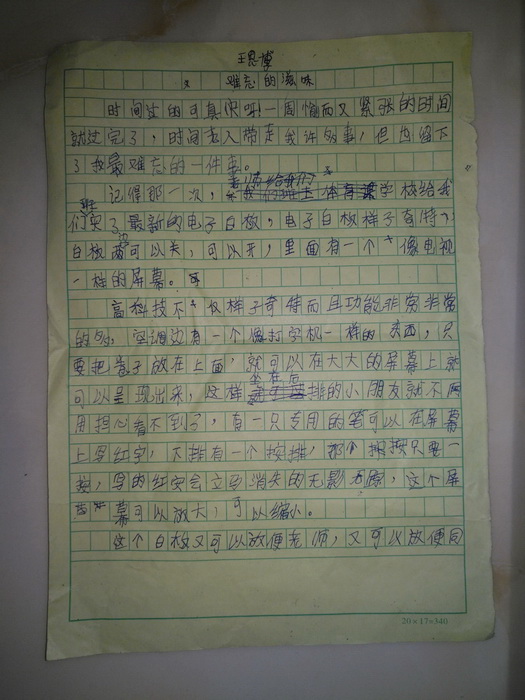 王恩博
难忘的滋味
时间过的可真快呀!一周愉而又紧张的时间
就过完了,时间老人带走我许多事,但也留下
了我最难忘的一件事。
记得那一次,老师给我们上体育课学校给我
们班安了最新的电子白板,电子白板样子奇特,
白板两边可以关,可以开,里面有一个像电视
一样的屏幕。
高科技不仅样子奇特而且功能非常非常
的多,空调边有一个像打字机一样的东西,只
要把卷子放在上面,就可以在大大的屏幕上就
可以呈现出来,这样坐在后排的小朋友就不用
用担心看不到了,有一只专用的笔可以在屏幕
上写红字,下排有一个按排,那个按按只要一
按,写的红字会立即消失的无影无踪,这个屏
幕可以放大,可以缩小。
这个白板又可以放便老师,又可以放便同
20×17=340